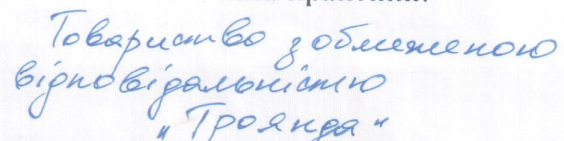 Товариство з обмеженою
відповідальністю
„Троянда"